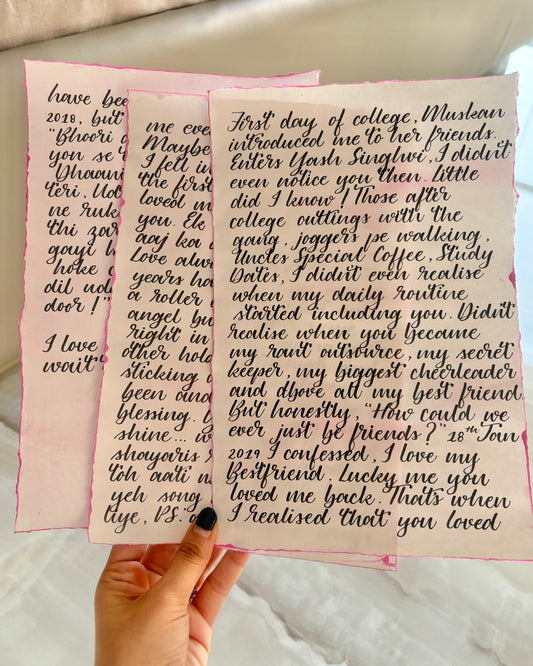 have bee
2018, but
"Bhoori a
you se u
Dhaani
teri, Udt
ne ruk
thi zar
gayi h
hoke
dil ud
door!"
I love
wait t
me eve
Maybe
I fell in
the firs
loved m
you. Ek
aaj ka
Love alw
years ha
a roller
angel bu
right in
other hold
sticking
been and
blessing.
shine... w
shayaris
toh aati n
yeh song
liye, P.S. a
First day of college, Muskan
introduced me to her friends.
Enters Yash Singhvi, I didn't
even notice you then. Little
did I know! Those after
college outtings with the
gang, joggers pe walking,
Uncles Special Coffee, Study
Dates, I didn't even realise
when my daily routine
started including you. Didn't
realise when you became
my rant outsource, my secret
keeper, my biggest cheerleader
and above all my best friend.
But honestly, "How could we
ever just be friends?" 28th Jan
2019 I confessed, I love my
Bestfriend. Lucky me you
loved me back. That's when
I realised that you loved